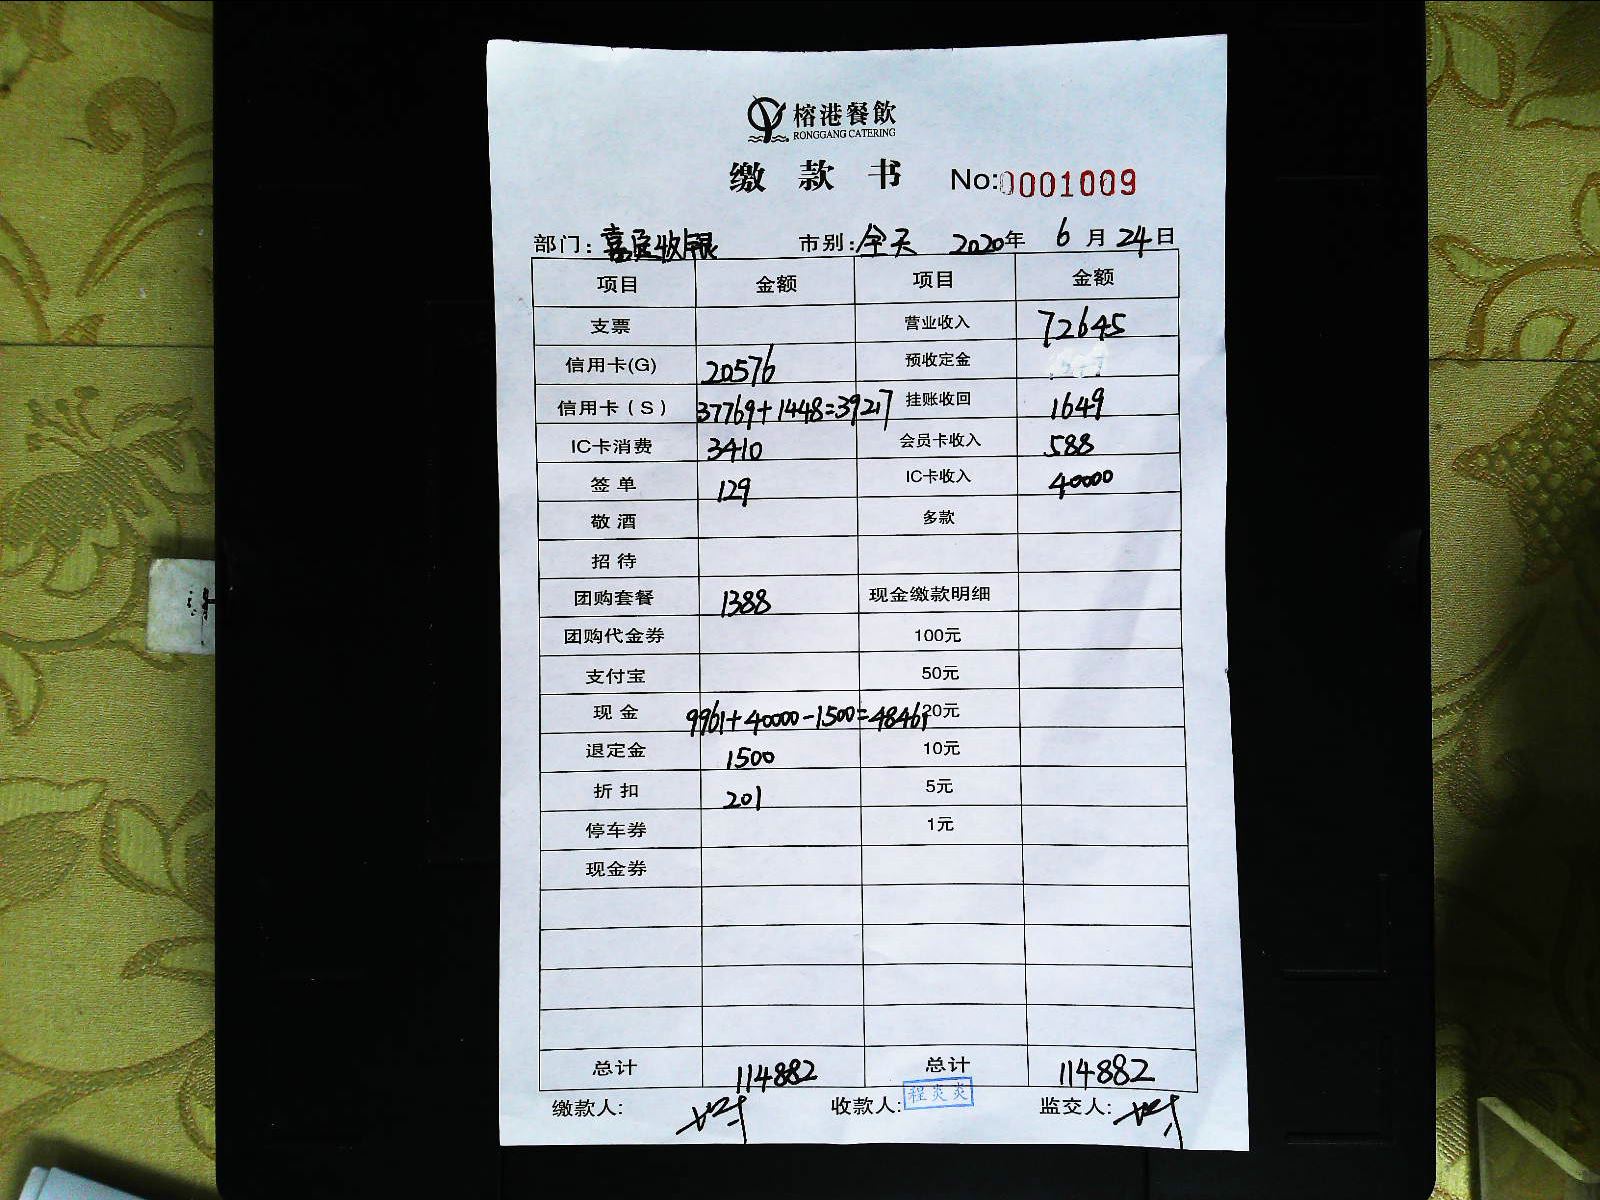 榕港餐飲
RONGGANG CATERING
缴款书 No:0001009
部门: 嘉定收银 市别: 全天 2020年 6月 24日
项目 金额 项目 金额
支票 营业收入 72645
信用卡(G) 20576 预收定金
信用卡(S) 37769+1448=39217 挂账收回 1649
IC卡消费 3410 会员卡收入 588
签单 129 IC卡收入 40000
敬酒 多款
招待
团购套餐 1388 现金缴款明细
团购代金券 100元
支付宝 50元
现金 9961+40000-1500=48461 20元
退定金 1500 10元
折扣 201 5元
停车券 1元
现金券
总计 114882 总计 114882
缴款人: 收款人: 程炎炎 监交人: